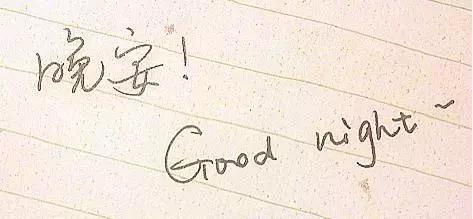 晚安!
Good night~